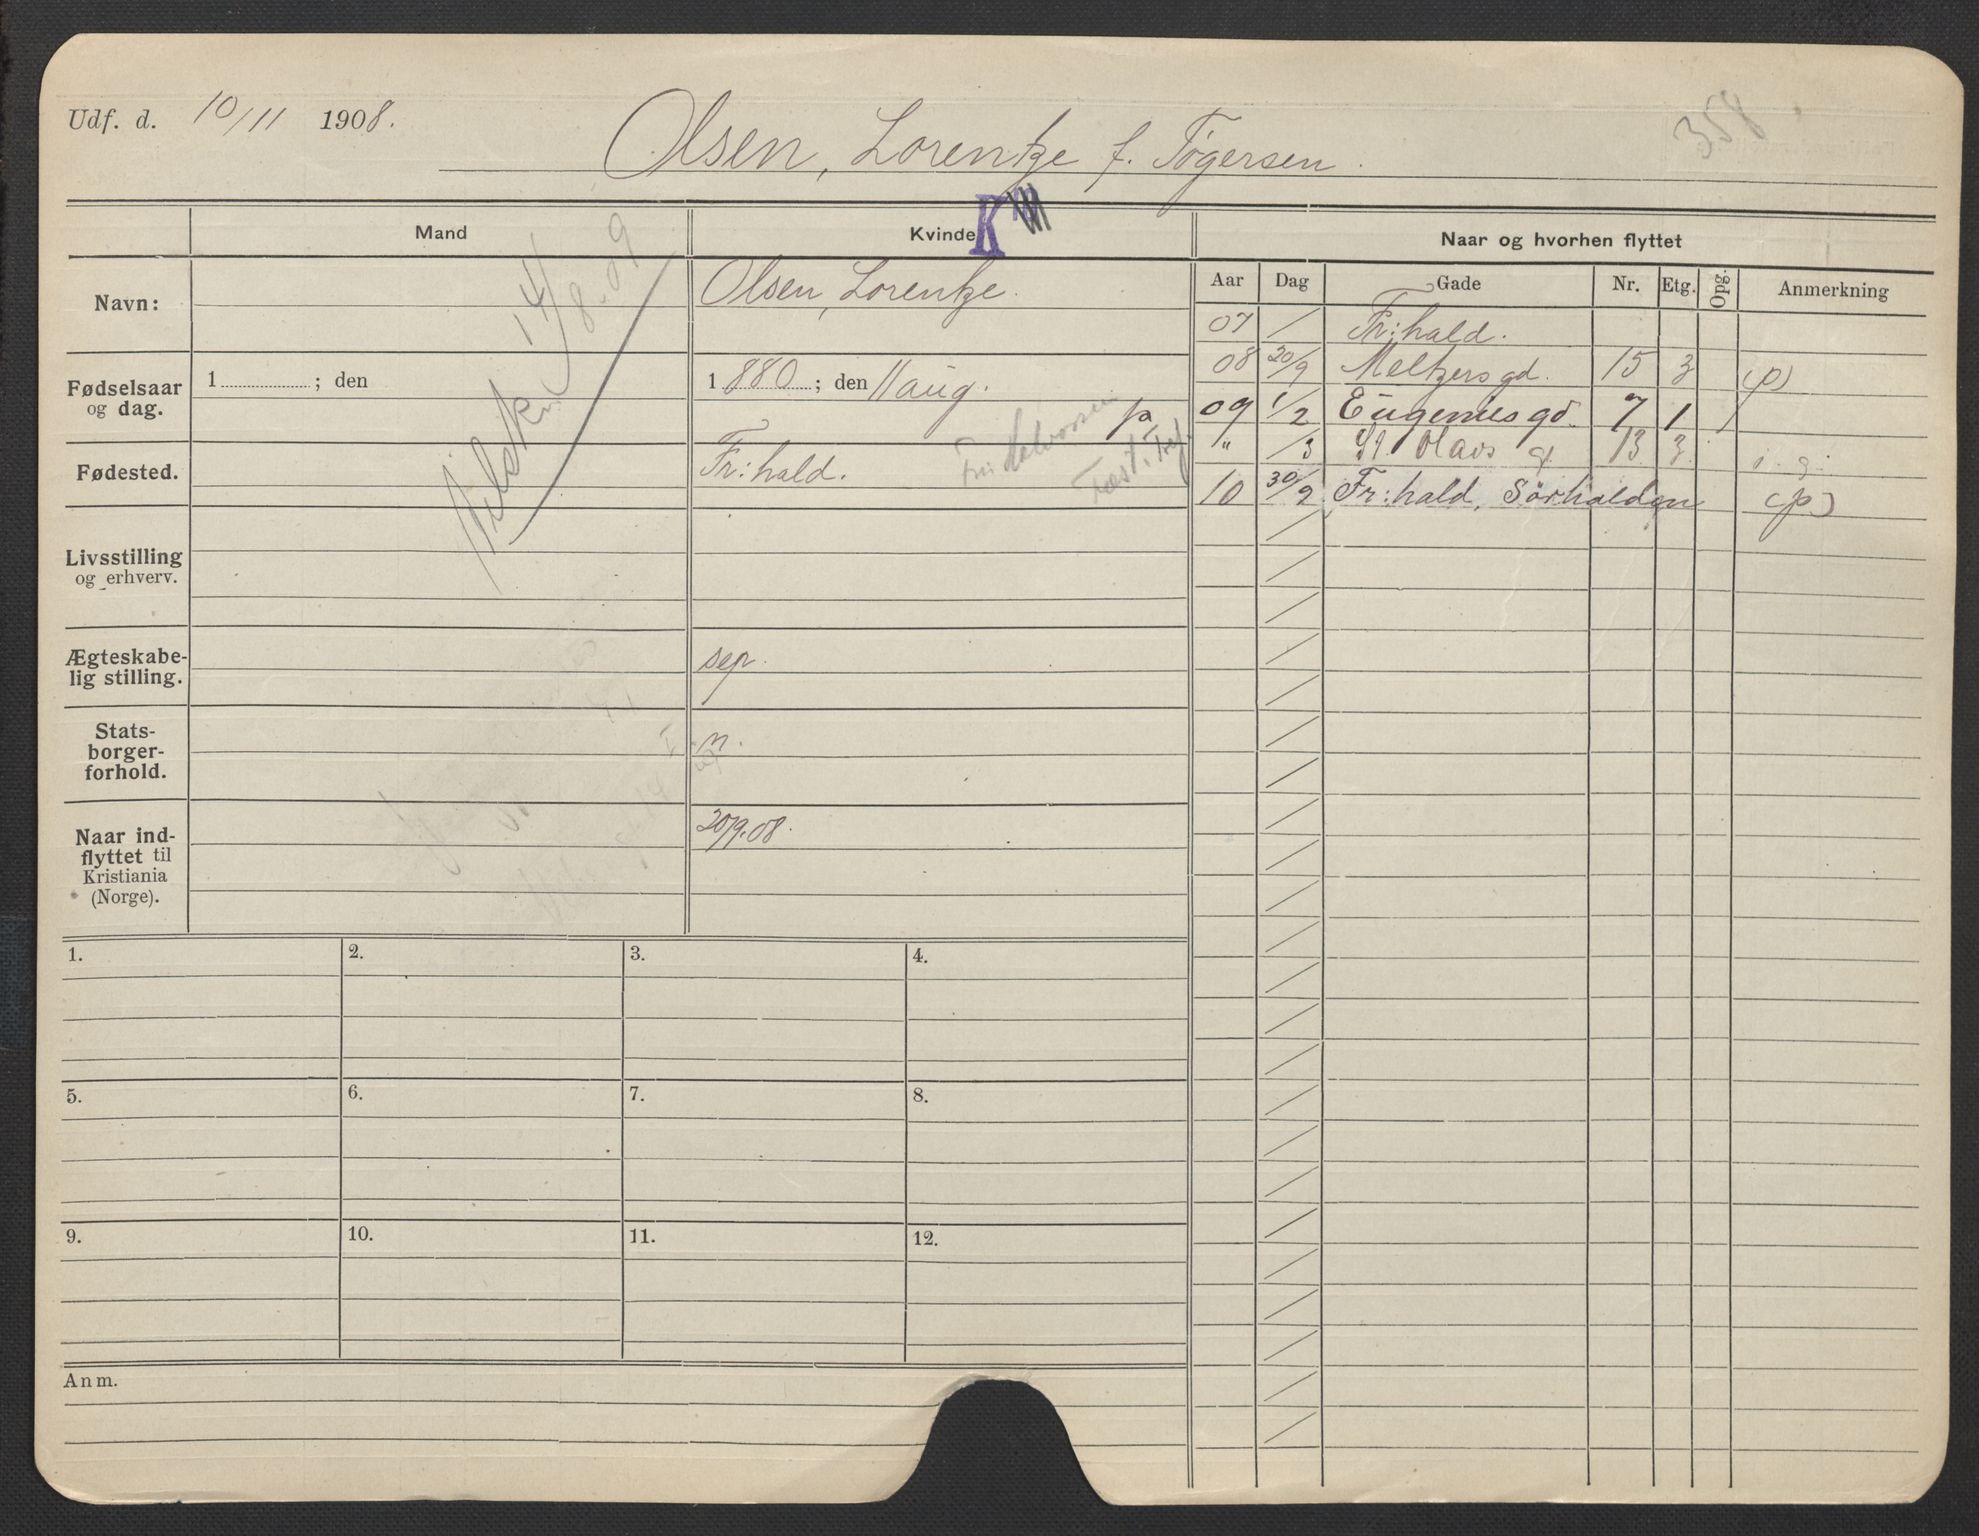 Udf. d. 10/11 1908.
Olsen, Lorentze f. Tøgersen.
358
K
Mand
Kvinde
Naar og hvorhen flyttet
Aar Dag Gade Nr. Etg. Opg. Anmerkning
Navn:
Olsen, Lorentze.
14/8.09
Fødselsaar og dag.
1 ; den
1 880 ; den 11 aug.
Fødested.
Fr:hald.
Livsstilling og erhverv.
Ægteskabelig stilling.
sep.
Statsborgerforhold.
n.
Naar indflyttet til Kristiania (Norge).
20/9.08.
07 / Fr:hald.
08 20/9 Meltzers gd. 15 3 (p)
09 1/2 Eugenies gd. 7 1
" /3 St. Olavs g. 13 3
10 30/9 Fr:hald, Sørhalden (p)
1. 2. 3. 4.
5. 6. 7. 8.
9. 10. 11. 12.
Anm.